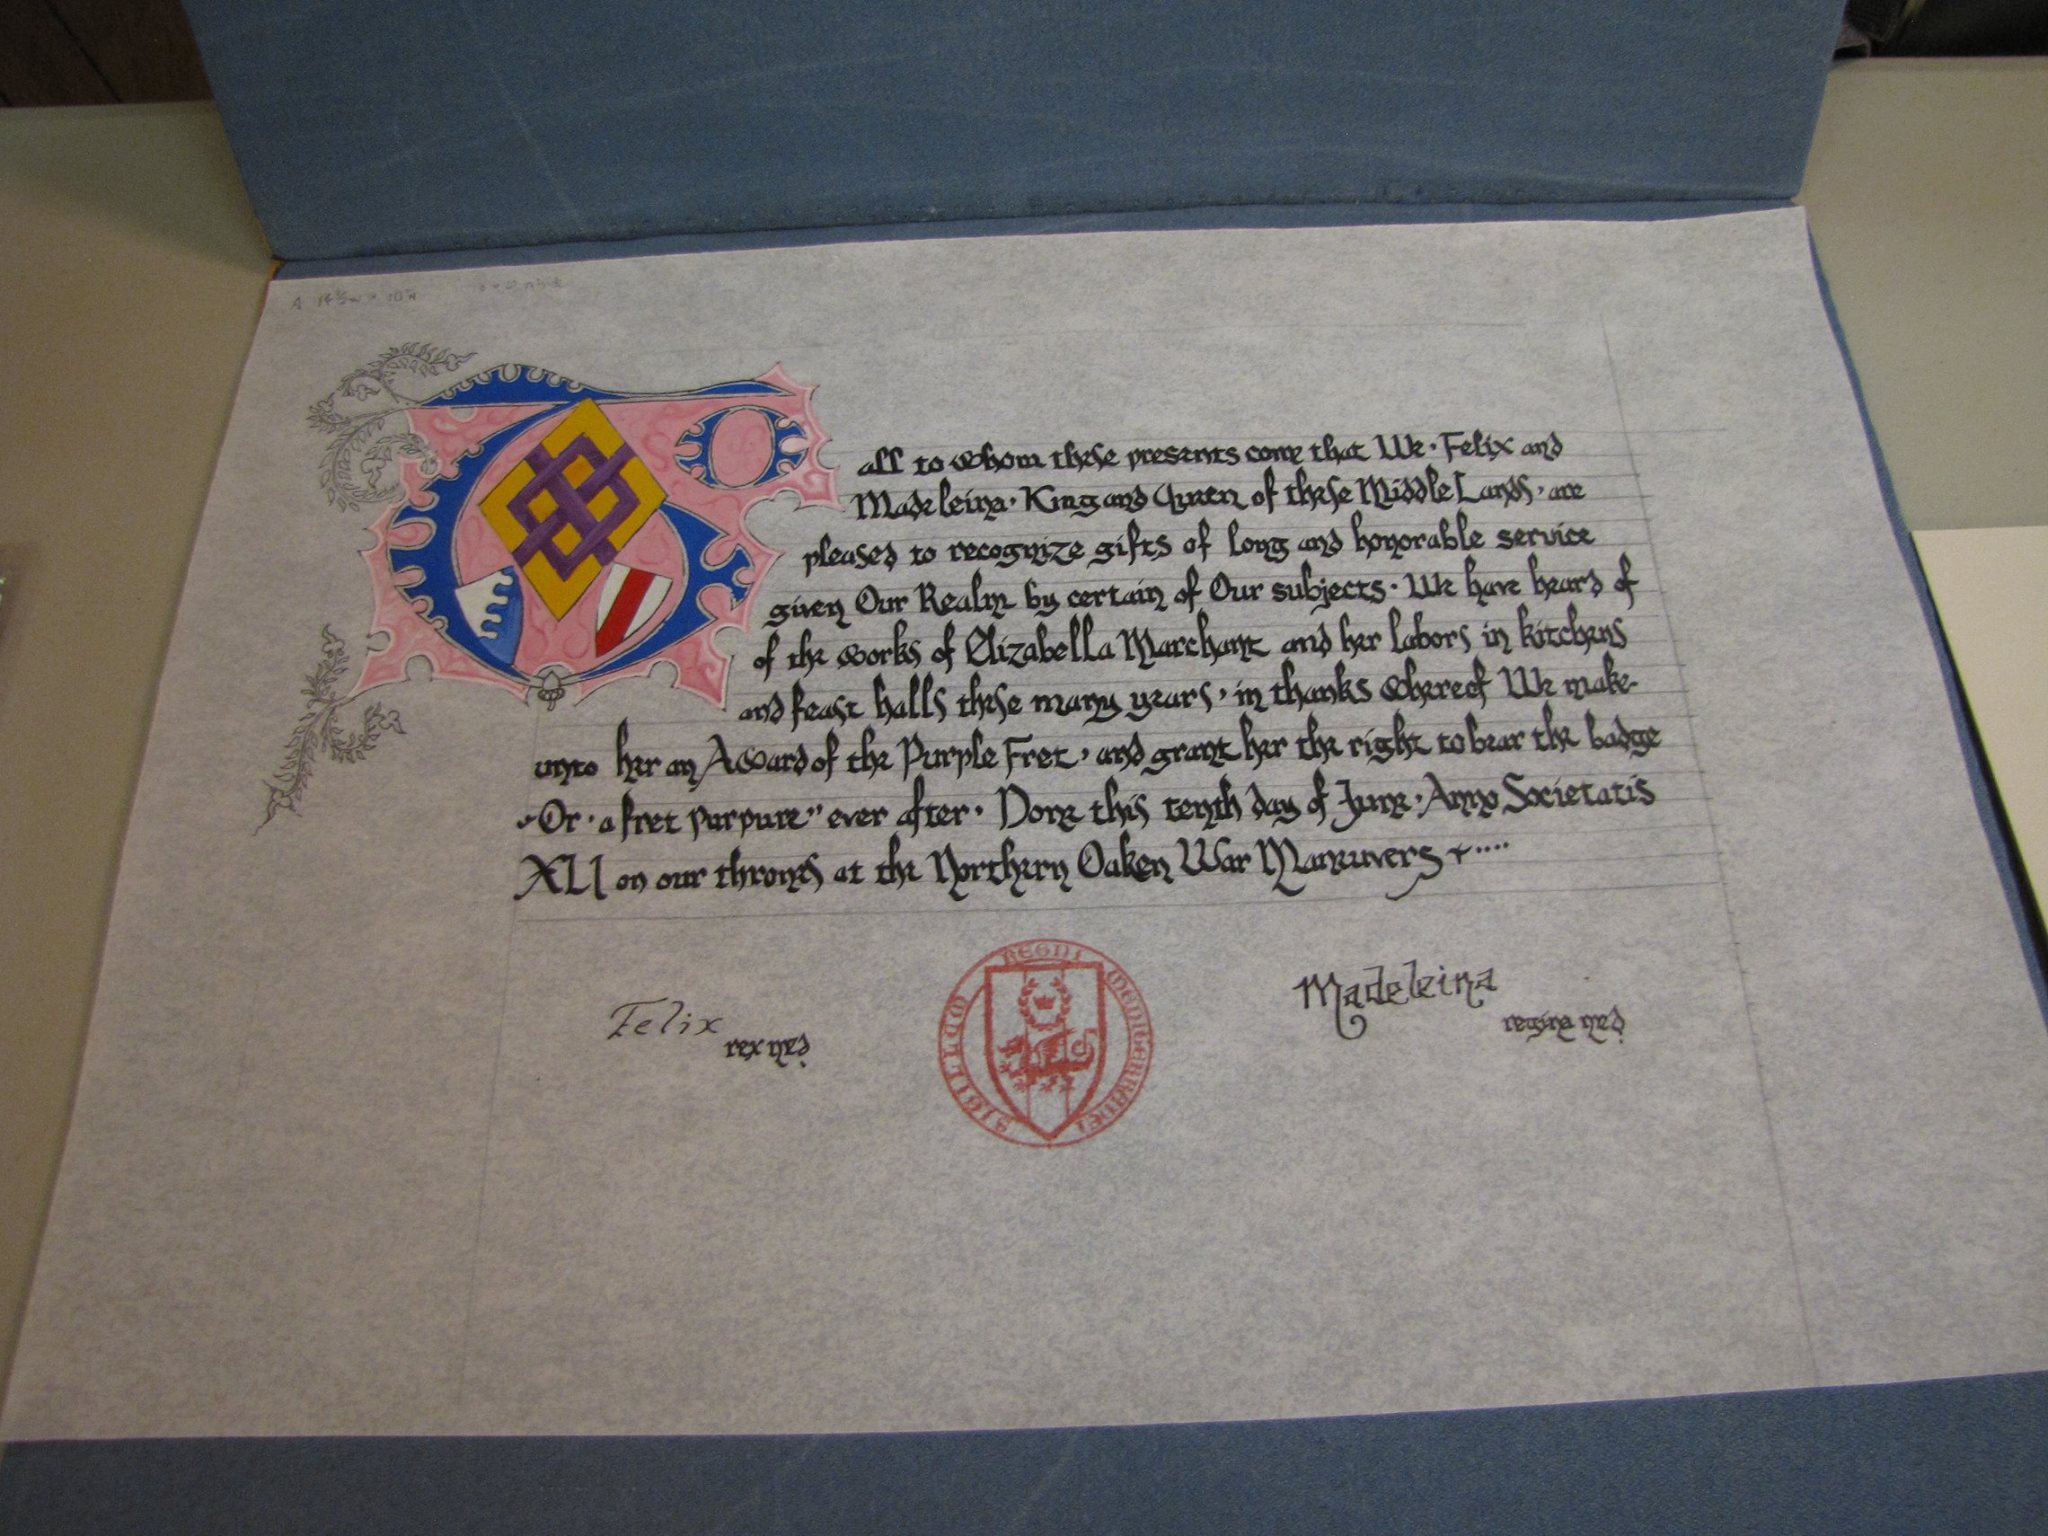 To
all to whom these presents come that We · Felix and
Madeleina · King and Queen of these Middle Lands · are
pleased to recognize gifts of long and honorable service
given Our Realm by certain of Our subjects · We have heard of
of the works of Elizabella Marchant and her labors in kitchens
and feast halls these many years · in thanks whereof We make
unto her an Award of the Purple Fret · and grant her the right to bear the badge
"Or · a fret purpure" ever after · Done this tenth day of June · Anno Societatis
XLI on our thrones at the Northern Oaken War Maneuvers
Felix
rex
Madeleina
regina
SIGILLUM REGNI